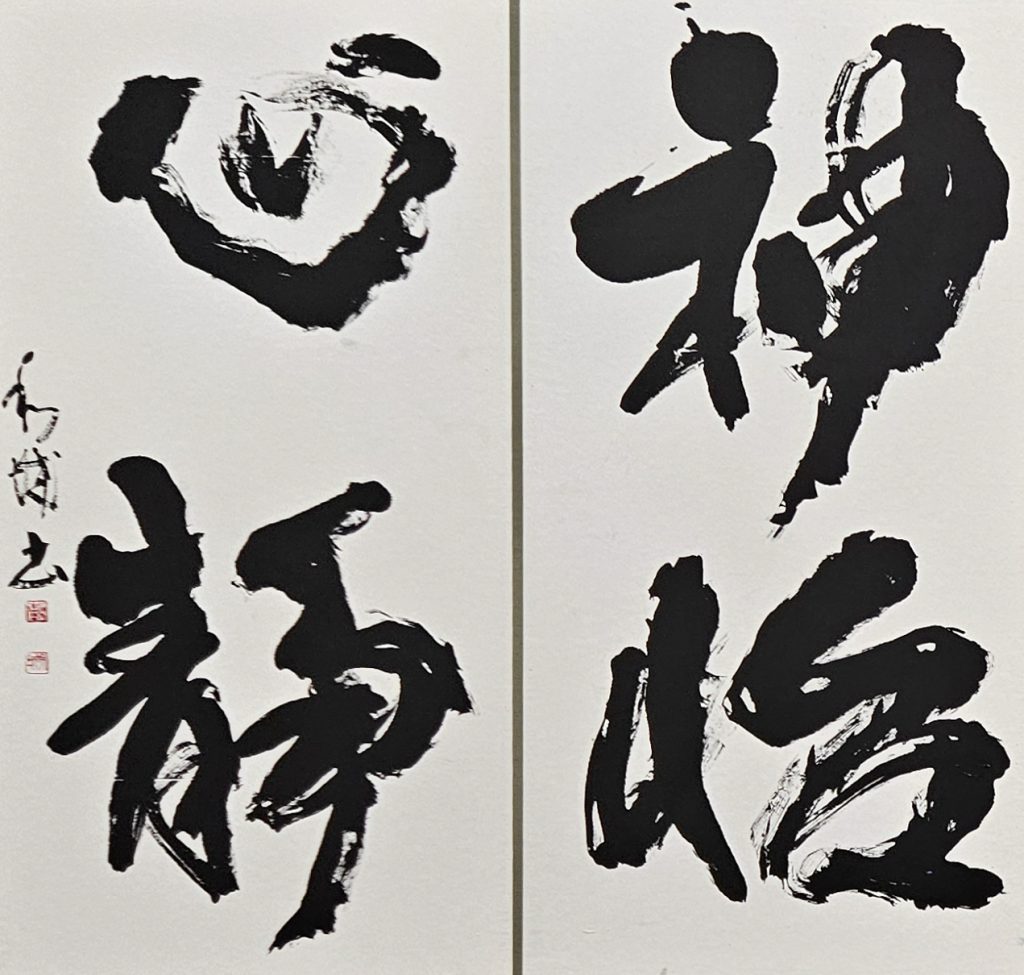 神怡
心静